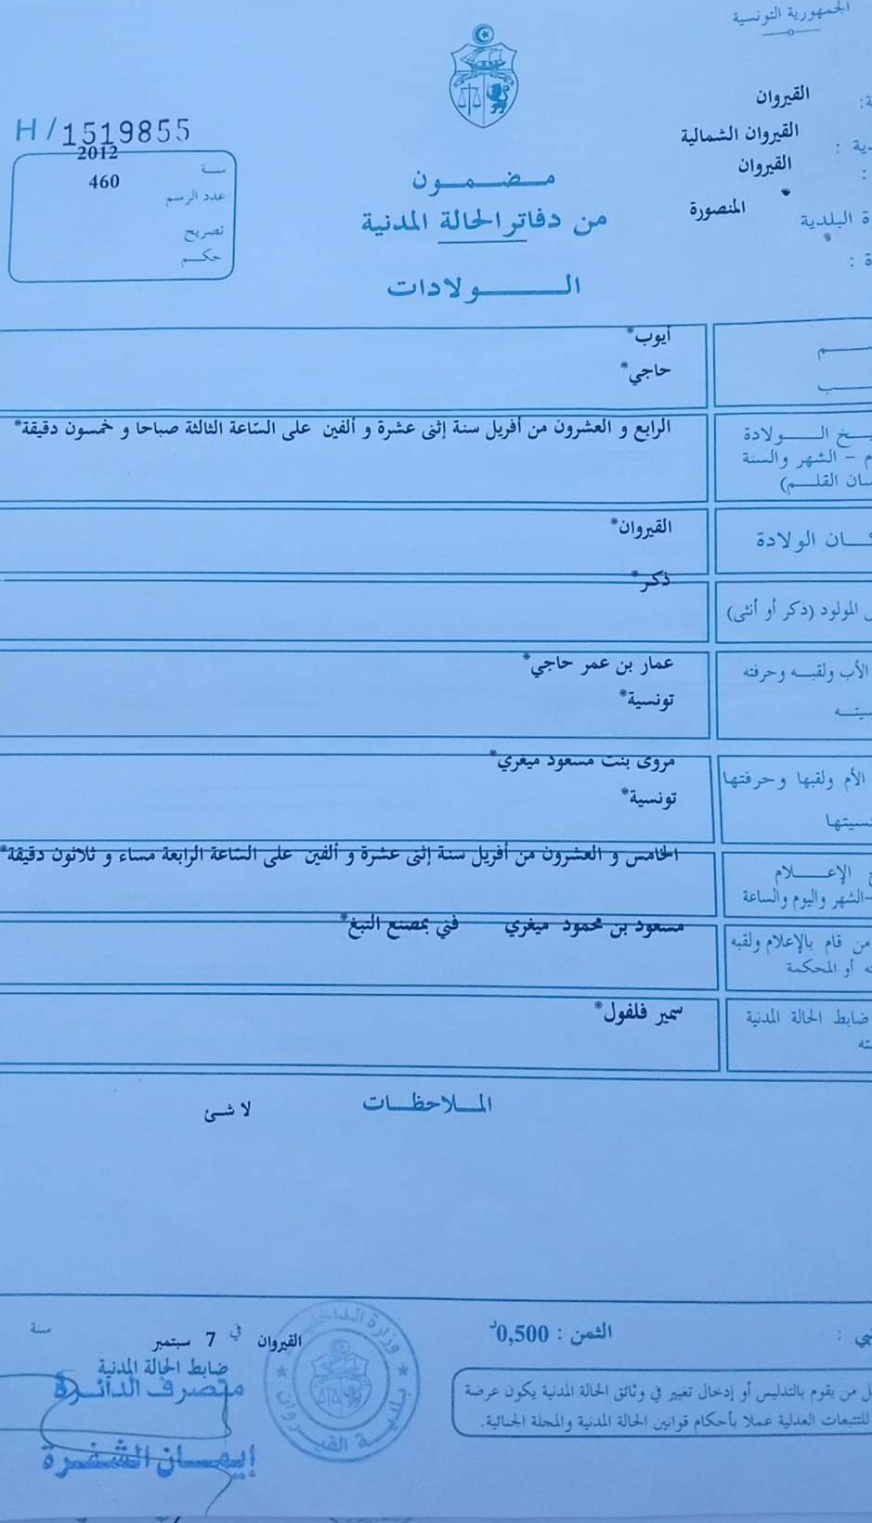 الجمهورية التونسية
القيروان
القيروان الشمالية
القيروان
البلدية المنصورة
H/1519855
سنة 2012
عدد الرسم 460
تصريح
حكم
مضمون
من دفاتر الحالة المدنية
الولادات
أيوب*
حاجي*
الولادة
الرابع و العشرون من أفريل سنة إثنى عشرة و ألفين على السّاعة الثالثة صباحا و خمسون دقيقة*
– الشهر والسنة
القلم)
الولادة القيروان*
المولود (ذكر أو أنثى) ذكر*
الأب ولقبه وحرفته عمار بن عمر حاجي*
تونسية*
الأم ولقبها وحرفتها مروى بنت مسعود ميغري*
تونسية*
الإعلام الخامس و العشرون من أفريل سنة إثنى عشرة و ألفين على السّاعة الرابعة مساء و ثلاثون دقيقة*
-الشهر واليوم والساعة
من قام بالإعلام ولقبه مسعود بن محمود ميغري فني بمصنع التبغ*
أو المحكمة
ضابط الحالة المدنية سمير فلفول*
الملاحظات لا شئ
الثمن : 0,500د
القيروان في 7 سبتمبر سنة
ضابط الحالة المدنية
متصرف الدائرة
إيمان الشفرة
وزارة الداخلية
بلدية القيروان
من يقوم بالتدليس أو إدخال تغيير في وثائق الحالة المدنية يكون عرضة
للتتبعات العدلية عملا بأحكام قوانين الحالة المدنية والمجلة الجنائية.